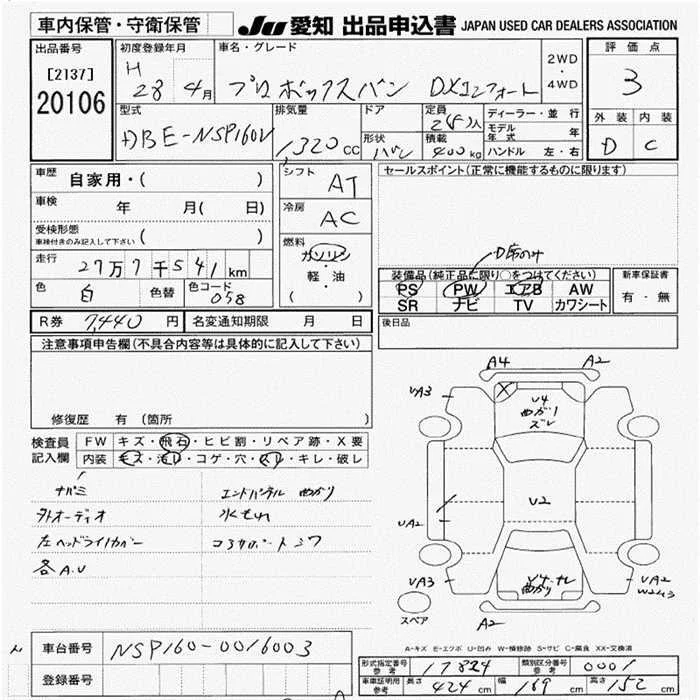 車内保管・守衛保管 JU 愛知 出品申込書 JAPAN USED CAR DEALERS ASSOCIATION
出品番号 初度登録年月 車名・グレード 2WD・4WD 評価点
[2137] H 28年 4月 プロボックスバン DXコンフォート 3
20106 型式 排気量 ドア 定員 ディーラー・並行 外装 内装
DBE-NSP160V 1320cc 2(5)人 モデル年式 年 D C
形状 バン 積載 400kg ハンドル 左・右
車歴 自家用・( ) シフト AT セールスポイント(正常に機能するものに限ります)
車検 年 月( 日) 冷房 AC
受検形態 車検付きのみ記入して下さい ( )
燃料 ガソリン・軽・油 ( )
D席のみ
走行 27万7千541km 装備品(純正品に限り○をつけてください) 新車保証書
色 白 色替 色コード 058 PS PW エアB AW 有・無
SR ナビ TV カワシート
R券 7,440円 名変通知期限 月 日 後日品
注意事項申告欄(不具合内容等は具体的に記入して下さい)
修復歴 有 (箇所
A4 A2
UA3
U4 曲がり ズレ
検査員記入欄 FW キズ・飛石・ヒビ割・リペア跡・X要
内装 キズ・汚レ・コゲ・穴・スレ・キレ・破レ
ナバミ エンドパネル 曲がり
外オーディオ 水もれ
左ヘッドライトカバー コアサポートシワ
各A.U
U2
UA2
UA3 UA2
W2W3
スペア A2
A-キズ E-エクボ U-凹み W-補修跡 S-サビ C-腐食 XX-交換済
車台番号 NSP160-0016003
登録番号
形式指定番号 参考 17824 類別区分番号 参考 0001
車庫証明用 参考 長さ 424cm 幅 169cm 高さ 152cm